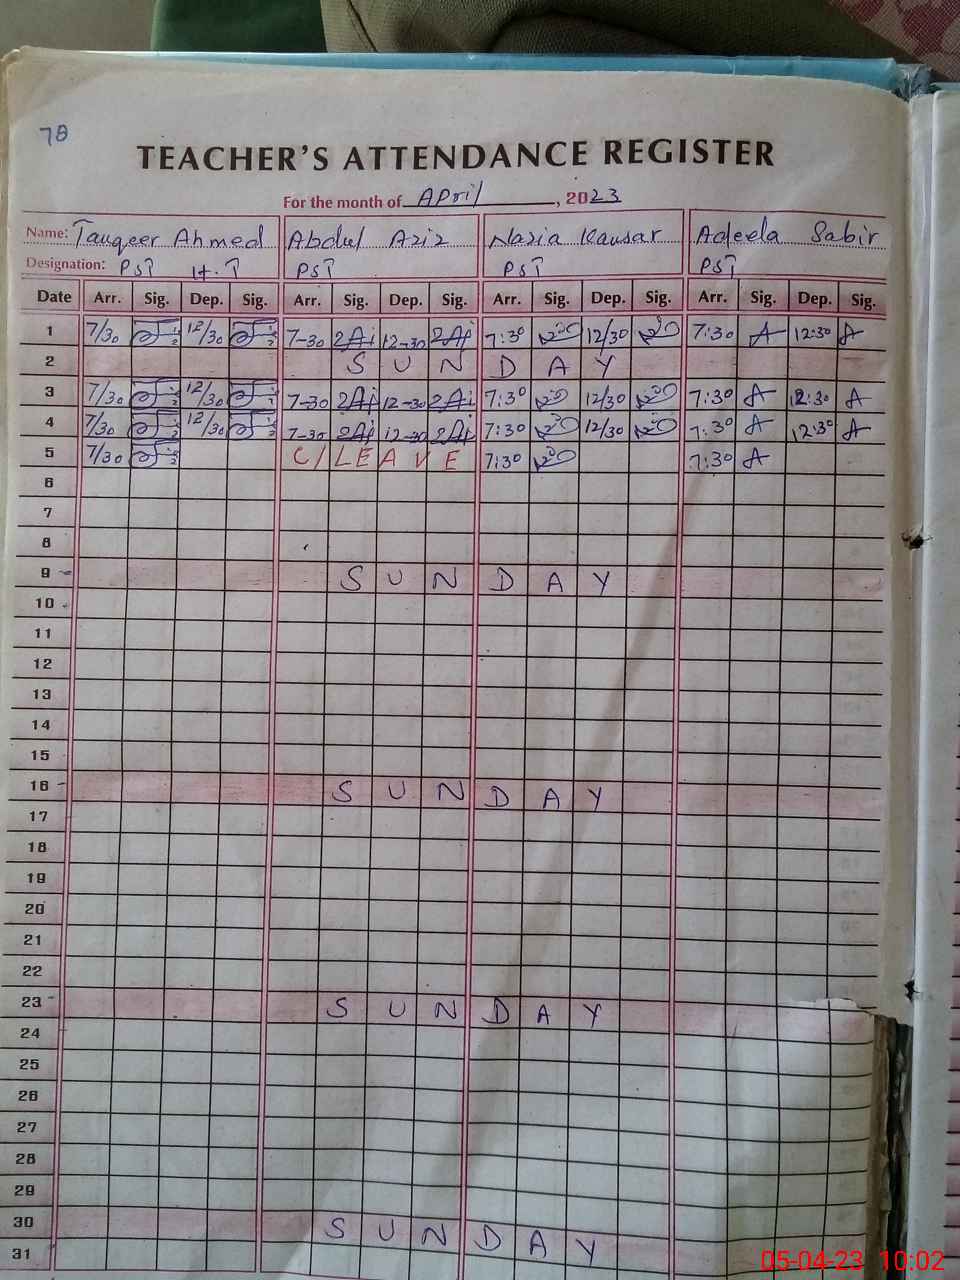 78
TEACHER'S ATTENDANCE REGISTER
For the month of April, 2023
Name: Tauqeer Ahmed Abdul Aziz Nazia Kausar Adeela Sabir
Designation: PST H.T PST PST PST
Date Arr. Sig. Dep. Sig. Arr. Sig. Dep. Sig. Arr. Sig. Dep. Sig. Arr. Sig. Dep. Sig.
1 7/30 12/30 7-30 12-30 7:30 12/30 7:30 12:30
2 SUNDAY
3 7/30 12/30 7-30 12-30 7:30 12/30 7:30 12:30
4 7/30 12/30 7-30 12-30 7:30 12/30 7:30 12:30
5 7/30 C/LEAVE 7:30 7:30
6
7
8
9 SUNDAY
10
11
12
13
14
15
16 SUNDAY
17
18
19
20
21
22
23 SUNDAY
24
25
26
27
28
29
30 SUNDAY
31
05-04-23 10:02